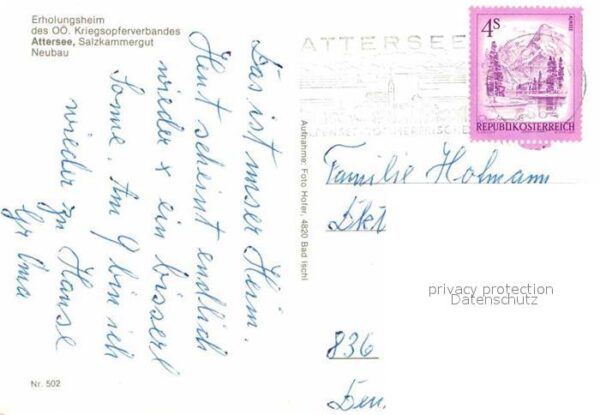 Erholungsheim
des OÖ. Kriegsopferverbandes
Attersee, Salzkammergut
Neubau
Das ist unser Heim.
Heut scheint endlich
wieder x ein bisserl
Sonne. Am 9 bin ich
wieder zu Hause
Gr Oma
Nr. 502
Aufnahme: Foto Hofer, 4820 Bad Ischl
ATTERSEE
4s
REPUBLIK ÖSTERREICH
Familie Hofmann
836
privacy protection
Datenschutz